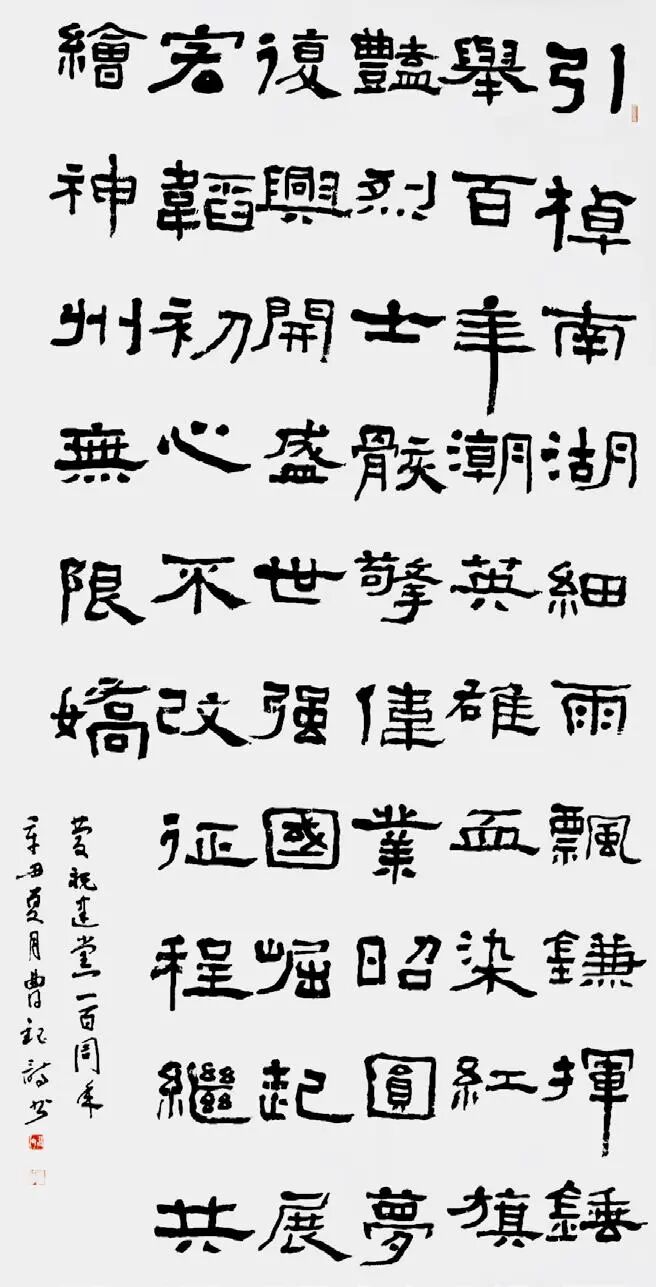 引棹南湖細雨飄鐮揮錘
舉百年潮英雄血染紅旗
豔烈士骸擎偉業昭圓夢
復興開盛世强國崛起展
宏韜初心不改征程繼共
繪神州無限嬌
慶祝建黨一百周年
辛丑夏月曹詩書